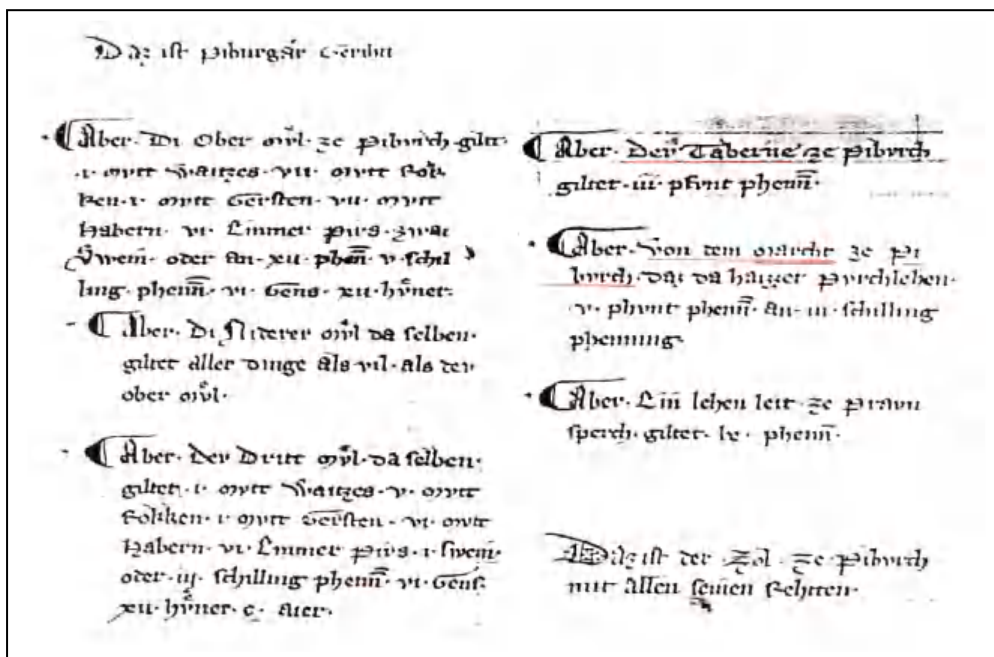 Daz ist Piburgår Gerihtt
Aber. Di Ober mvͤl. ze Pibvrch. giltt.
.i. mvtt Waitzes. vii. mvtt Rok
ken. i. mvtt Gersten. vii. mvtt
Habern. vi. Emmer Pirs. zwai
Swein. oder an. xii. phen̄. v. schil
ling. phenn̄. vi. Gens. xii. hvͤner.
Aber. Di Niderer mvͤl da selben.
giltet aller dinge als vil. als der
ober mvͤl.
Aber. Der Dritt mvͤl. da selben.
giltet. i. mvtt Waitzes. v. mvtt
Rokken. i. mvtt Gersten. vi. mvtt
Habern. vi. Emmer Pirs. i. swein.
oder. iij. schilling phenn̄. vi. Gens.
xii. hvͤner. c. aier.
Aber. Der Taberne ze Pibvrch
giltet. iii. pfvnt phenn̄.
Aber. Von dem marcht ze Pi
bvrch. daz da haizzet Pvrchlehen.
v. phvnt phenn̄. an. iii. schilling
phenning.
Aber. Ein lehen leit. ze Prawn
sperch. giltet. lx. phenn̄.
Daz ist der. Zol. ze Pibvrch
mit allen seinen Rehtten.